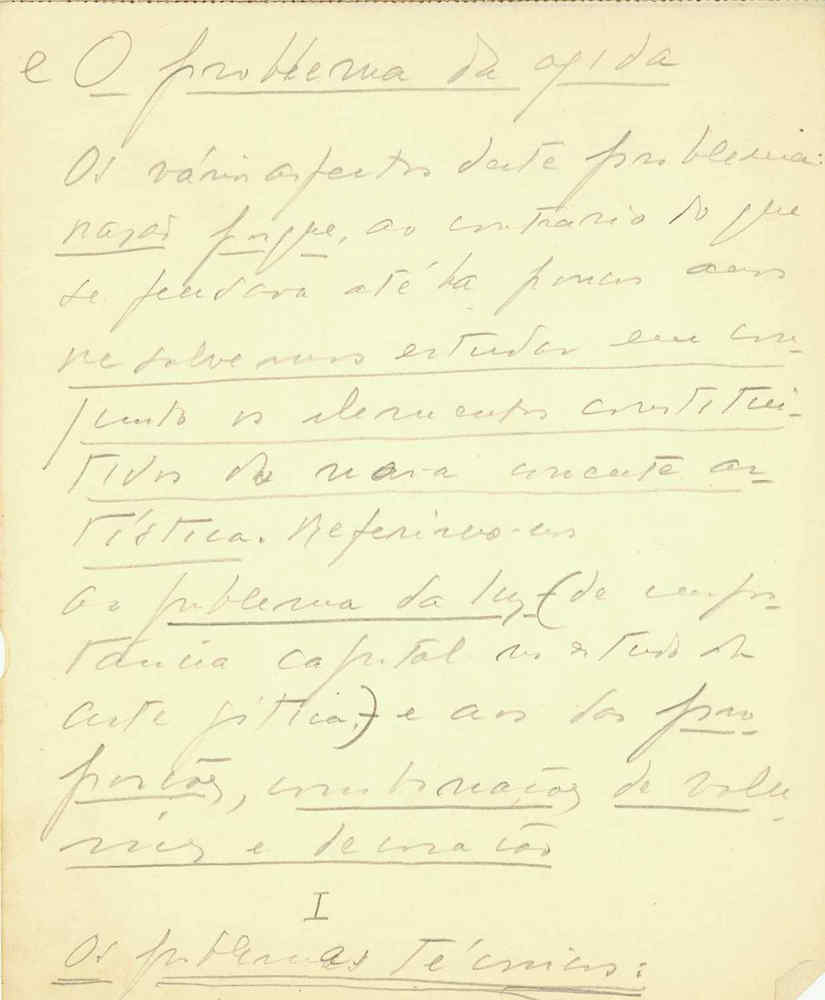 e O problema da ogida
Os vários aspectos deste problema:
razão porque, ao contrário do que
se pensava até há poucos anos
resolvemos estudar em con-
junto os elementos constitui-
tidos da nova corrente ar-
tística. Referimo-nos
ao problema da luz (de impor-
tância capital no estudo da
arte gótica,) e aos das pro
porções, combinações de volu-
mes e decoração
I
Os problemas técnicos: